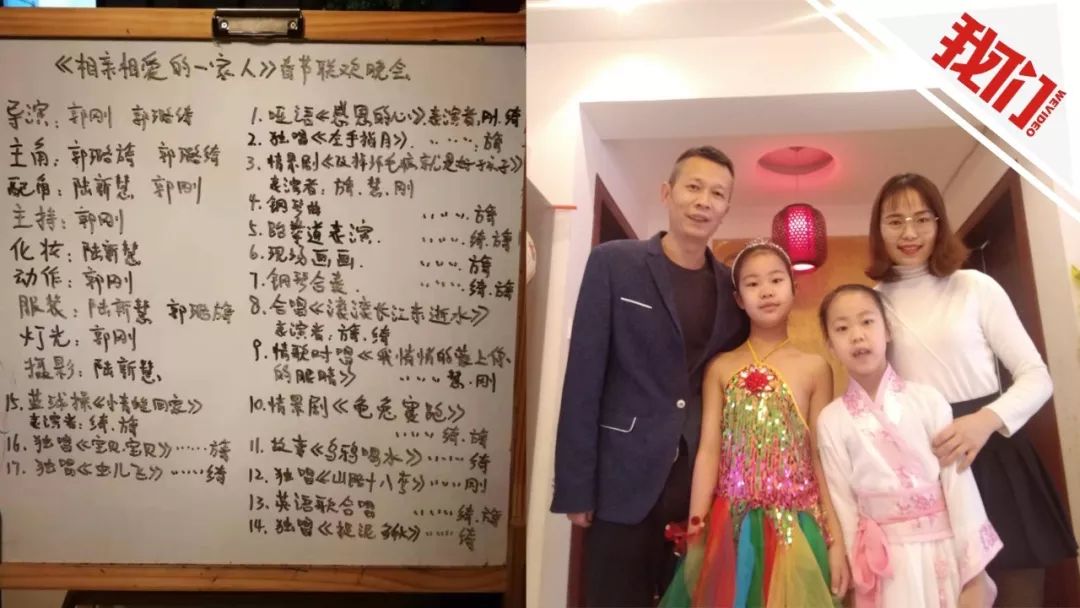 《相亲相爱的一家人》春节联欢晚会
导演：郭刚 郭璐绮
主角：郭璐旖 郭璐绮
配角：陆新慧 郭刚
主持：郭刚
化妆：陆新慧
动作：郭刚
服装：陆新慧 郭璐旖
灯光：郭刚
摄影：陆新慧
15. 篮球操《情能回家》
表演者：绮.旖
16. 独唱《宝贝.宝贝》……旖
17. 独唱《虫儿飞》……绮
1. 哑语《感恩的心》表演者,刚.绮
2. 独唱《左手指月》……旖
3. 情景剧《改掉坏毛病就是好孩子》
表演者：旖.慧.刚
4. 钢琴曲 ……旖
5. 跆拳道表演 ……绮.旖
6. 现场画画 ……旖
7. 钢琴合奏 ……绮.旖
8. 合唱《滚滚长江东逝水》
表演者：旖.绮
9. 情歌对唱《我悄悄的蒙上你
的眼睛》……慧.刚
10. 情景剧《龟兔赛跑》
……绮.旖
11. 故事《乌鸦喝水》……绮
12. 独唱《山路十八弯》……刚
13. 英语歌合唱 ……绮.旖
14. 独唱《捉泥鳅》……绮
我们
WEVIDEO